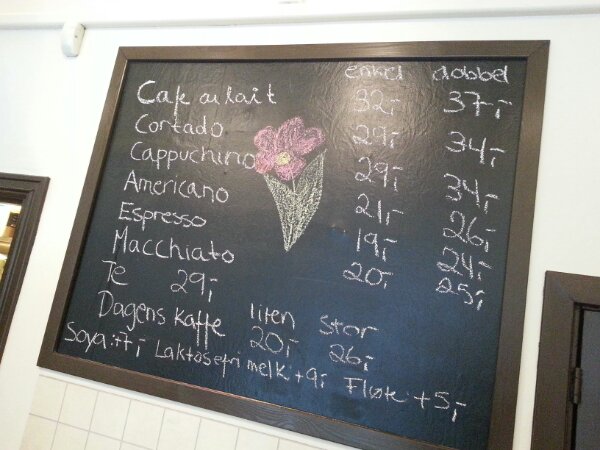 enkel dobbel
Cafe au lait 32,- 37,-
Cortado 29,- 34,-
Cappuchino 29,- 34,-
Americano 21,- 26,-
Espresso 19,- 24,-
Macchiato 20,- 25,-
Te 29,-
liten Stor
Dagens Kaffe 20,- 26,-
Soya:+7,- Laktosefri melk +9,- Fløte +5,-